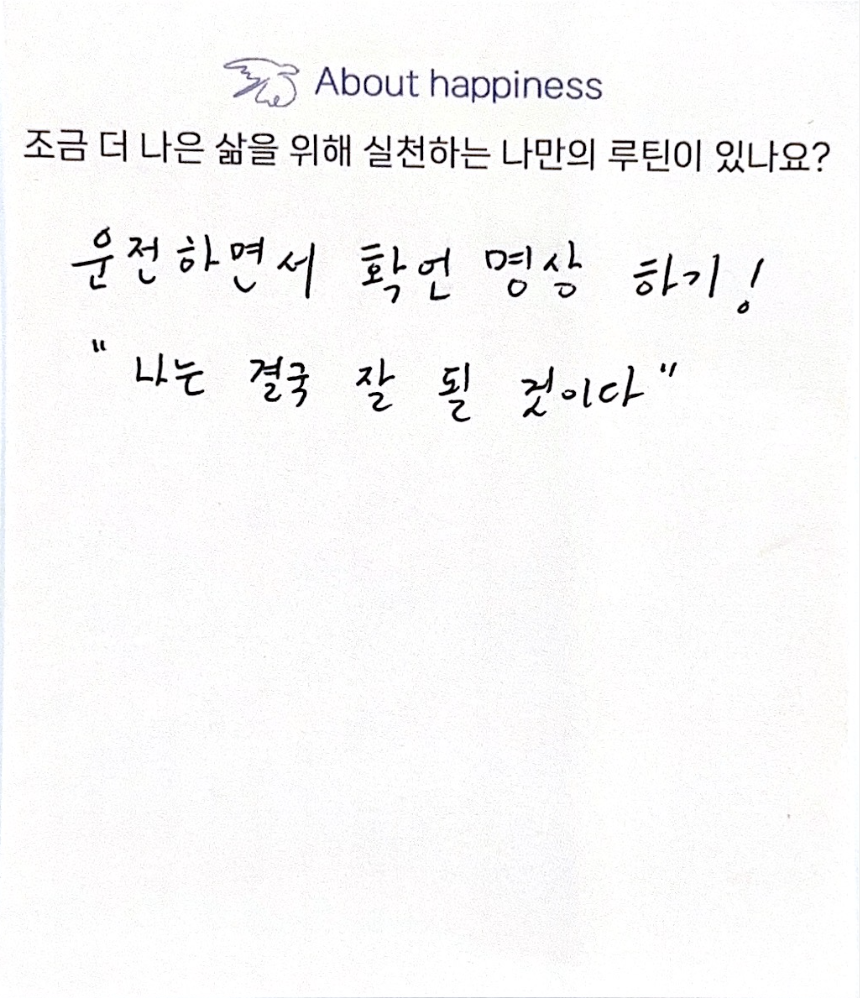 About happiness
조금 더 나은 삶을 위해 실천하는 나만의 루틴이 있나요?
운전하면서 확언 명상 하기!
"나는 결국 잘 될 것이다"